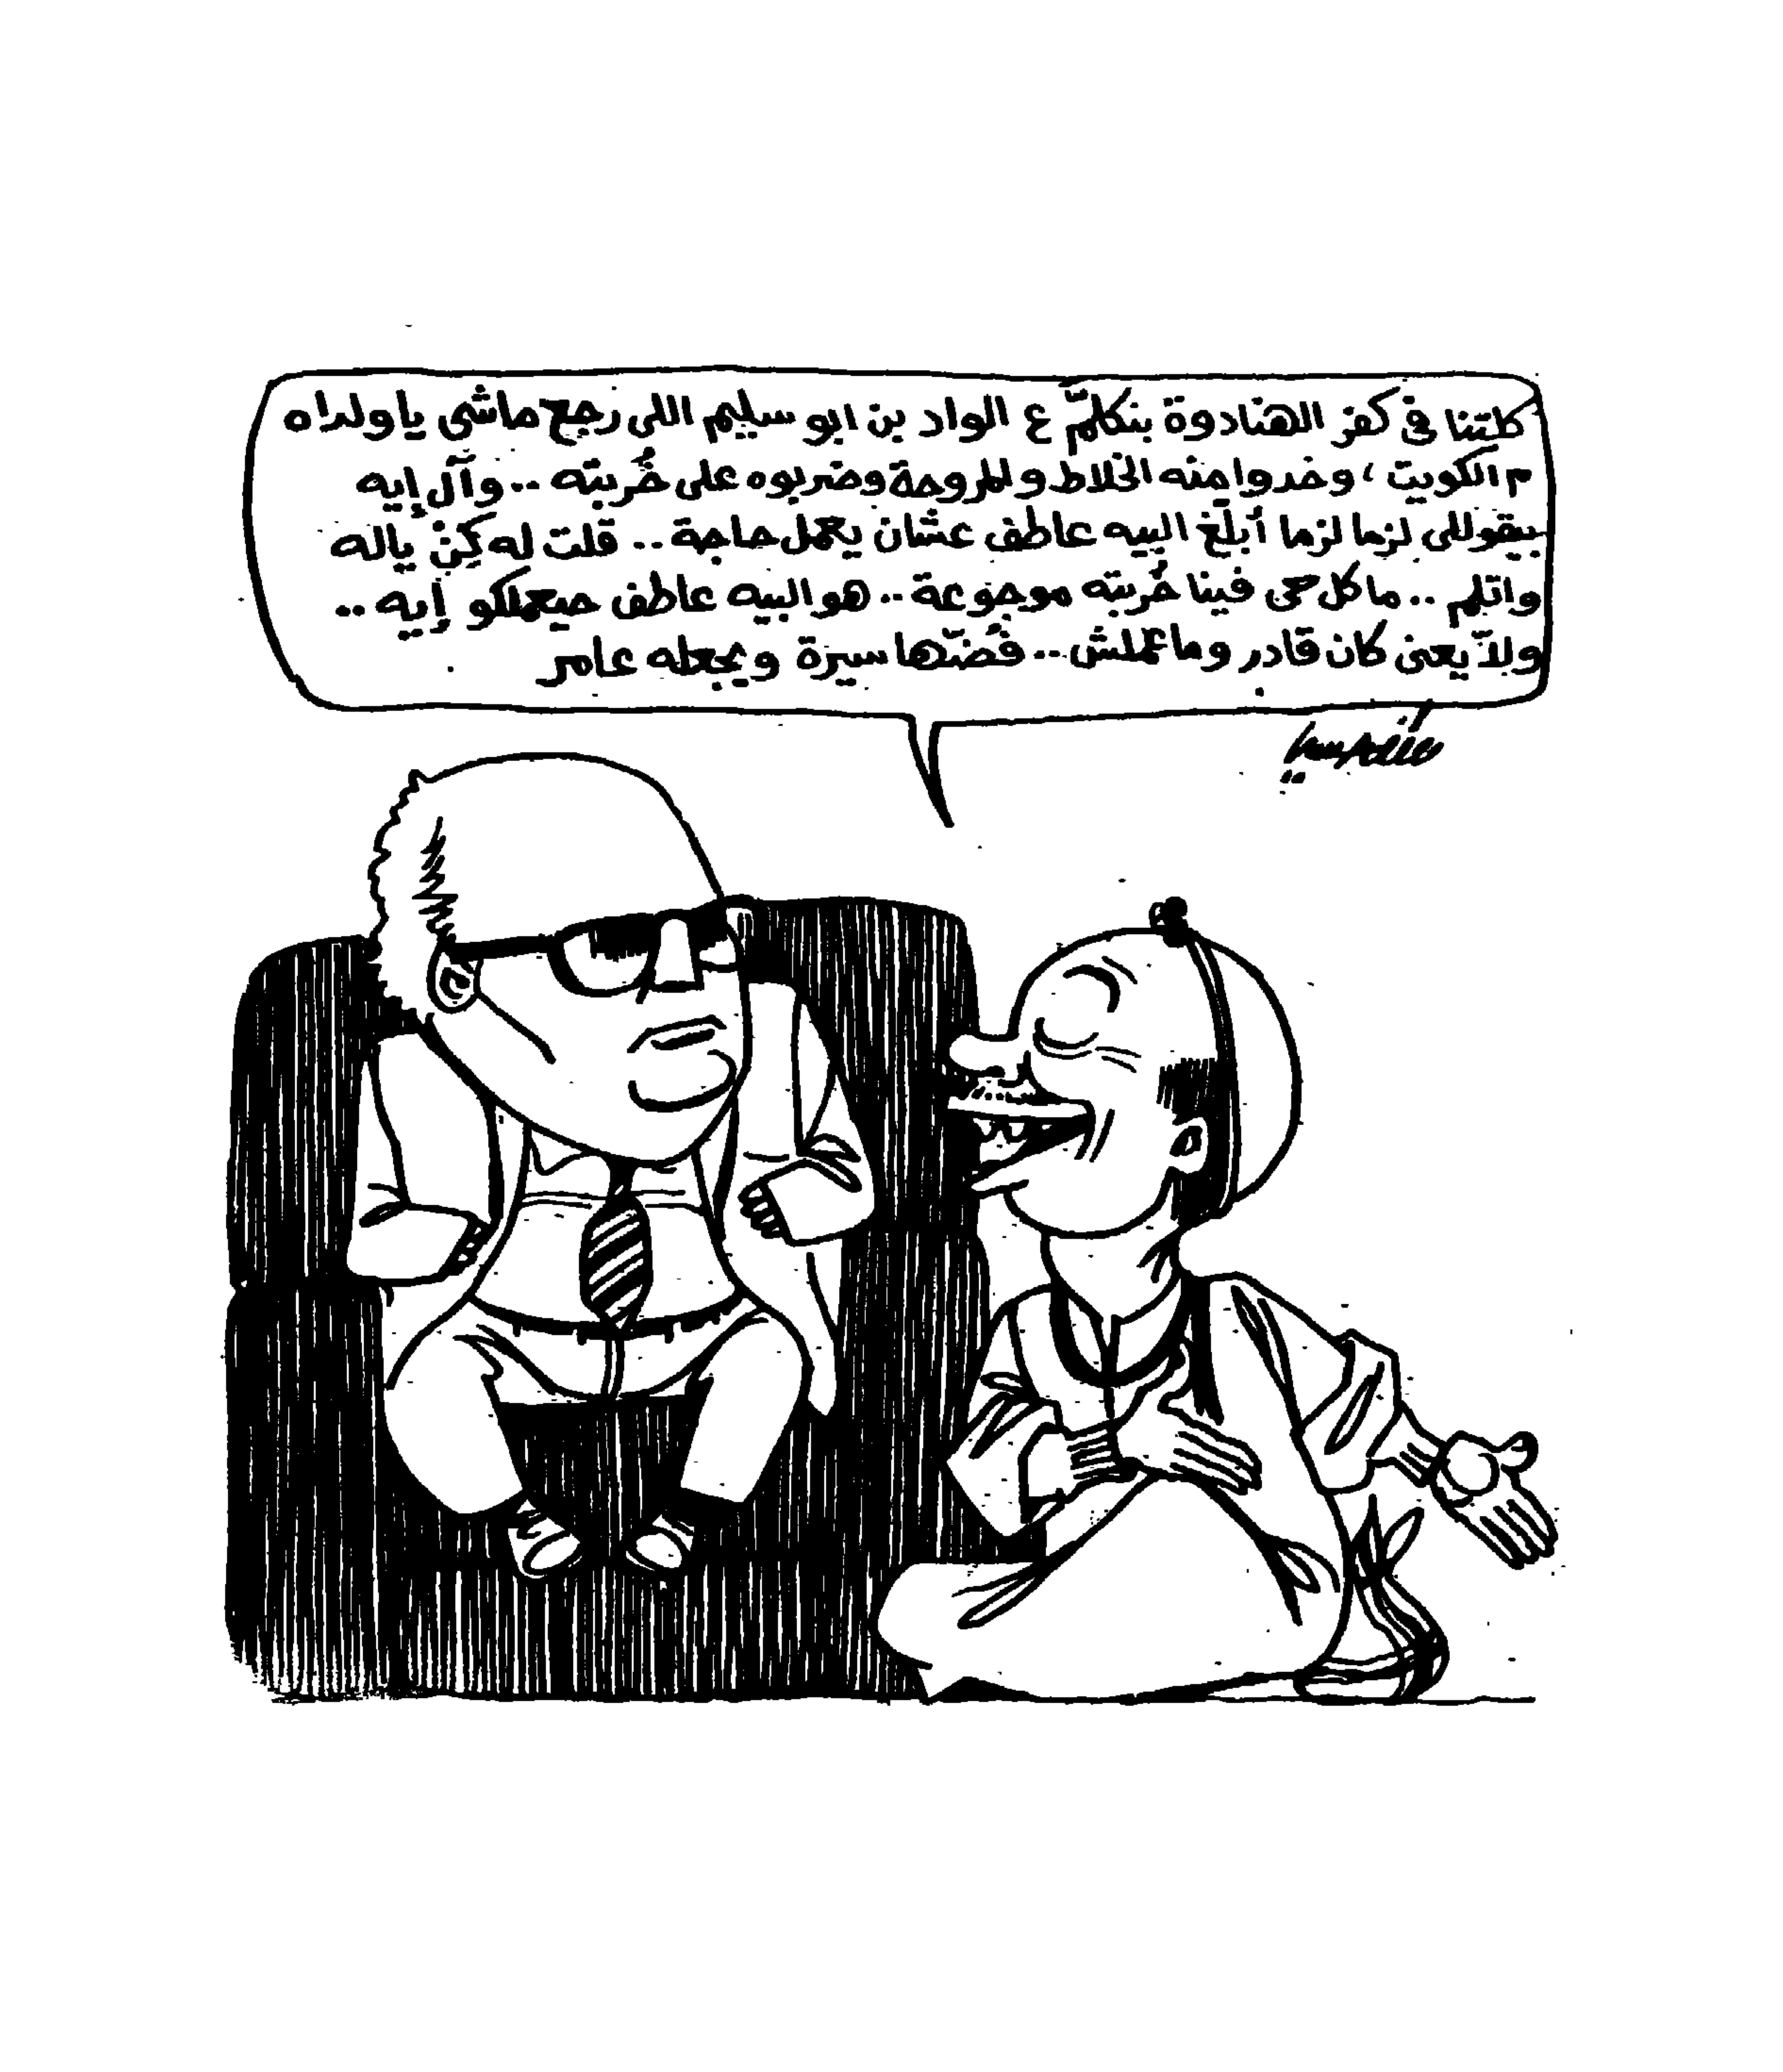 كلتنا فى كفر الهنادوة بنكلمّ ع الواد بن ابو سليم اللى رجع ماشى يا ولداه
م الكويت، وخدوا منه الخلاط والمروحة وضربوه على خُربته .. وآل إيه
بيقوللى لزما لزما أبلّغ البيه عاطف عشان يعمل حاجة .. قلت له كِنّ ياله
واتلم .. ما كل حى فينا خُربته موجوعة .. هو البيه عاطف حيعملكو إيه ..
ولاّ يعنى كان قادر وما عملش .. فُضّها سيرة ويجعله عامر